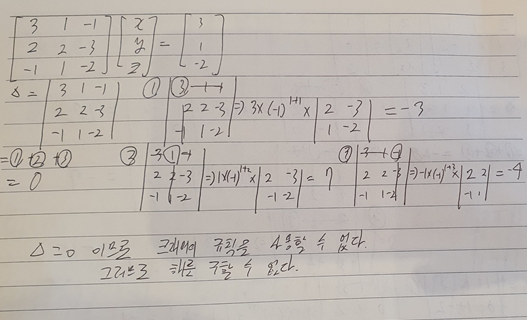 [3 1 -1; 2 2 -3; -1 1 -2] [x; y; z] = [3; 1; -2]
Δ = |3 1 -1; 2 2 -3; -1 1 -2| ① |③ -1 -1; 2 2 -3; -1 1 -2| ⇒ 3×(-1)¹⁺¹× |2 -3; 1 -2| = -3
= ① + ② + ③
= 0
② |-3 ① -1; 2 2 -3; -1 1 -2| ⇒ 1×(-1)¹⁺²× |2 -3; -1 -2| = 7
|2 2 -3; -1 1 -2| ⇒ -1×(-1)¹⁺³× |2 2; -1 1| = -4
Δ=0 이므로 크래머 규칙을 사용할 수 없다.
그러므로 해를 구할 수 없다.